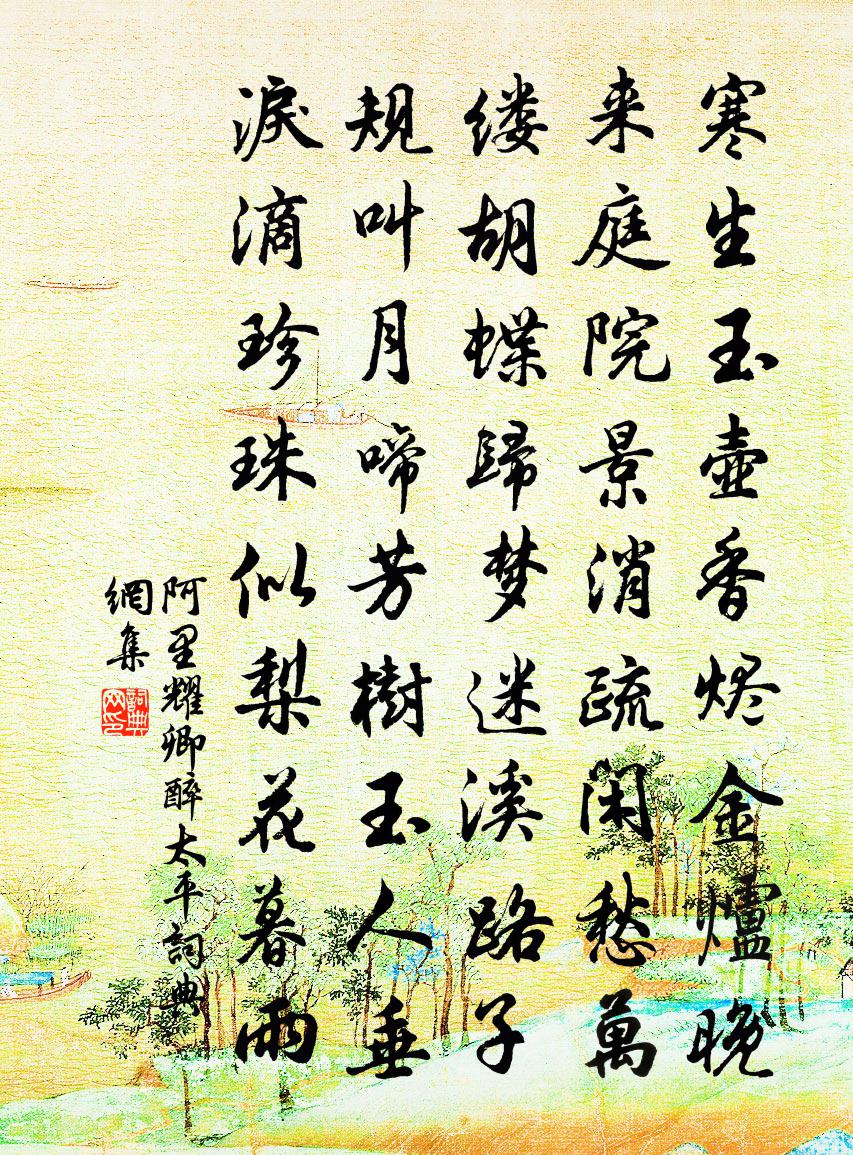 寒生玉壶香烬金爐晚
来庭院景消疏闲愁萬
缕胡蝶歸梦迷溪路子
規叫月啼芳樹玉人垂
淚滴珍珠似梨花暮雨
阿里耀卿醉太平詞典
網集
詞典
网印